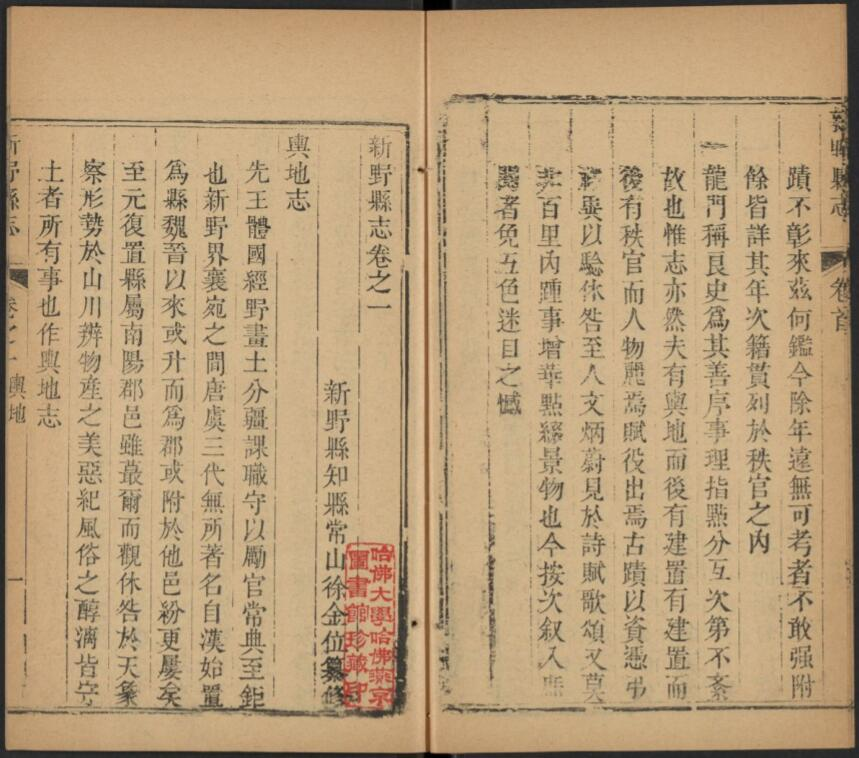 新野縣志
卷首
蹟不彰來茲何鑑今除年遠無可考者不敢强附
餘皆詳其年次籍貫列於秩官之內
一龍門稱良史爲其善序事理指點分互次第不紊
故也惟志亦然夫有輿地而後有建置有建置而
後有秩官而人物麗焉賦役出焉古蹟以資憑弔
異以驗休咎至人文炳蔚見於詩賦歌頌又莫
非百里內踵事增華點綴景物也今按次叙入
者免五色迷目之憾
新野縣志卷之一
新野縣知縣常山徐金位纂修
哈佛大學哈佛燕京
圖書館珍藏印
輿地志
先王體國經野畫土分疆課職守以勵官常典至鉅
也新野界襄宛之間唐虞三代無所著名自漢始置
爲縣魏晉以來或升而爲郡或附於他邑紛更屢矣
至元復置縣屬南陽郡邑雖蕞爾而觀休咎於天象
察形勢於山川辨物產之美惡紀風俗之醇漓皆守
土者所有事也作輿地志
新野縣志
卷之一輿地
一